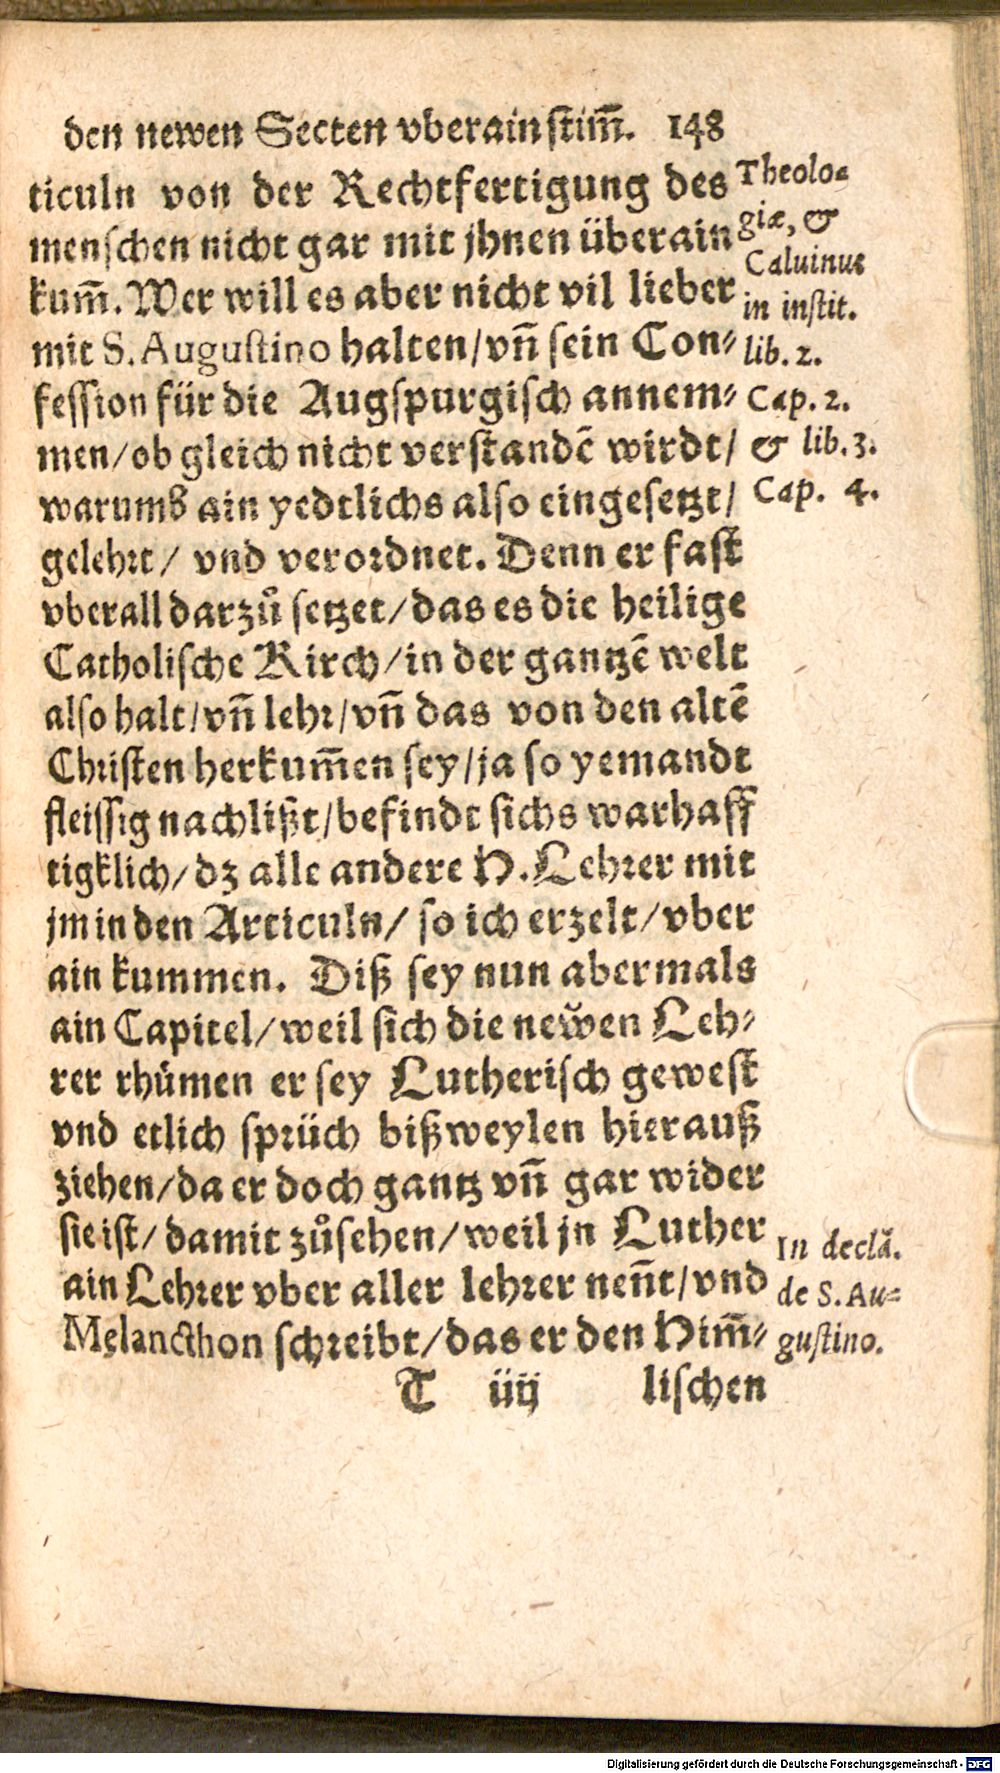 den newen Secten vberainstim̃. 148
ticuln von der Rechtfertigung des
menschen nicht gar mit jhnen überain
kum̃. Wer will es aber nicht vil lieber
mit S. Augustino halten/vn̄ sein Con⸗
fession für die Augspurgisch annem⸗
men/ob gleich nicht verstandē wirdt/
warumb ain yedtlichs also eingesetzt/
gelehrt/ vnd verordnet. Denn er fast
vberall darzů setzet/das es die heilige
Catholische Kirch/in der gantzē welt
also halt/vn̄ lehr/vn̄ das von den altē
Christen herkum̃en sey/ja so yemandt
fleissig nachlißt/befindt sichs warhaff
tigklich/dz alle andere H. Lehrer mit
jm in den Articuln/ so ich erzelt/vber
ain kummen. Diß sey nun abermals
ain Capitel/weil sich die newen Leh⸗
rer rhümen er sey Lutherisch gewest
vnd etlich sprüch bißweylen hierauß
ziehen/da er doch gantz vn̄ gar wider
sie ist/ damit zůsehen/weil jn Luther
ain Lehrer vber aller lehrer nen̄t/vnd
Melancthon schreibt/das er den Him̃⸗
T iiij lischen
Theolo⸗
giæ, &
Caluinus
in instit.
lib. 2.
Cap. 2.
& lib. 3.
Cap. 4.
In declã.
de S. Au⸗
gustino.
Digitalisierung gefördert durch die Deutsche Forschungsgemeinschaft - DFG